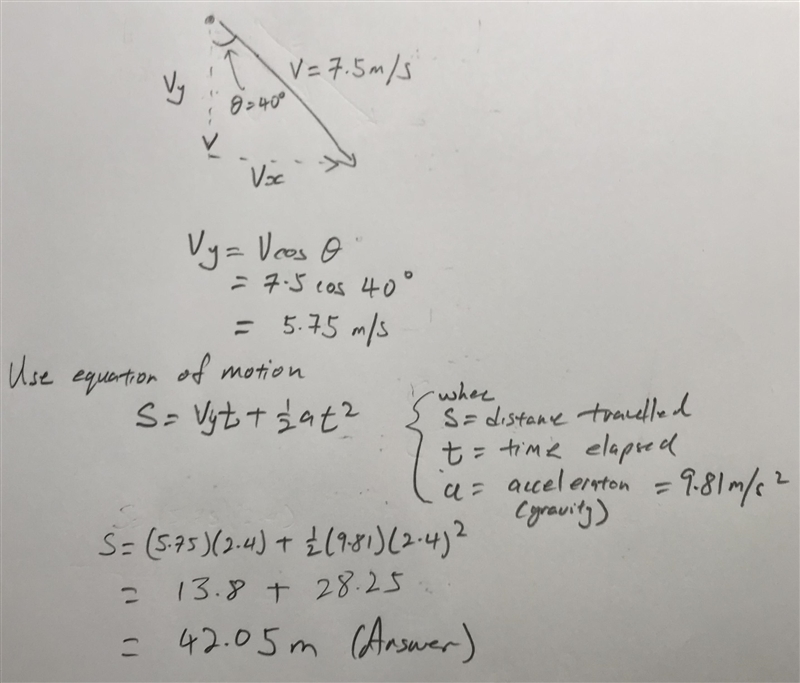 V = 7.5 m/s
Vy
θ=40°
Vx
Vy = V cos θ
= 7.5 cos 40°
= 5.75 m/s
Use equation of motion
S = Vyt + ½at²
where
S = distance travelled
t = time elapsed
a = acceleraton = 9.81 m/s²
(gravity)
S = (5.75)(2.4) + ½(9.81)(2.4)²
= 13.8 + 28.25
= 42.05 m (Answer)